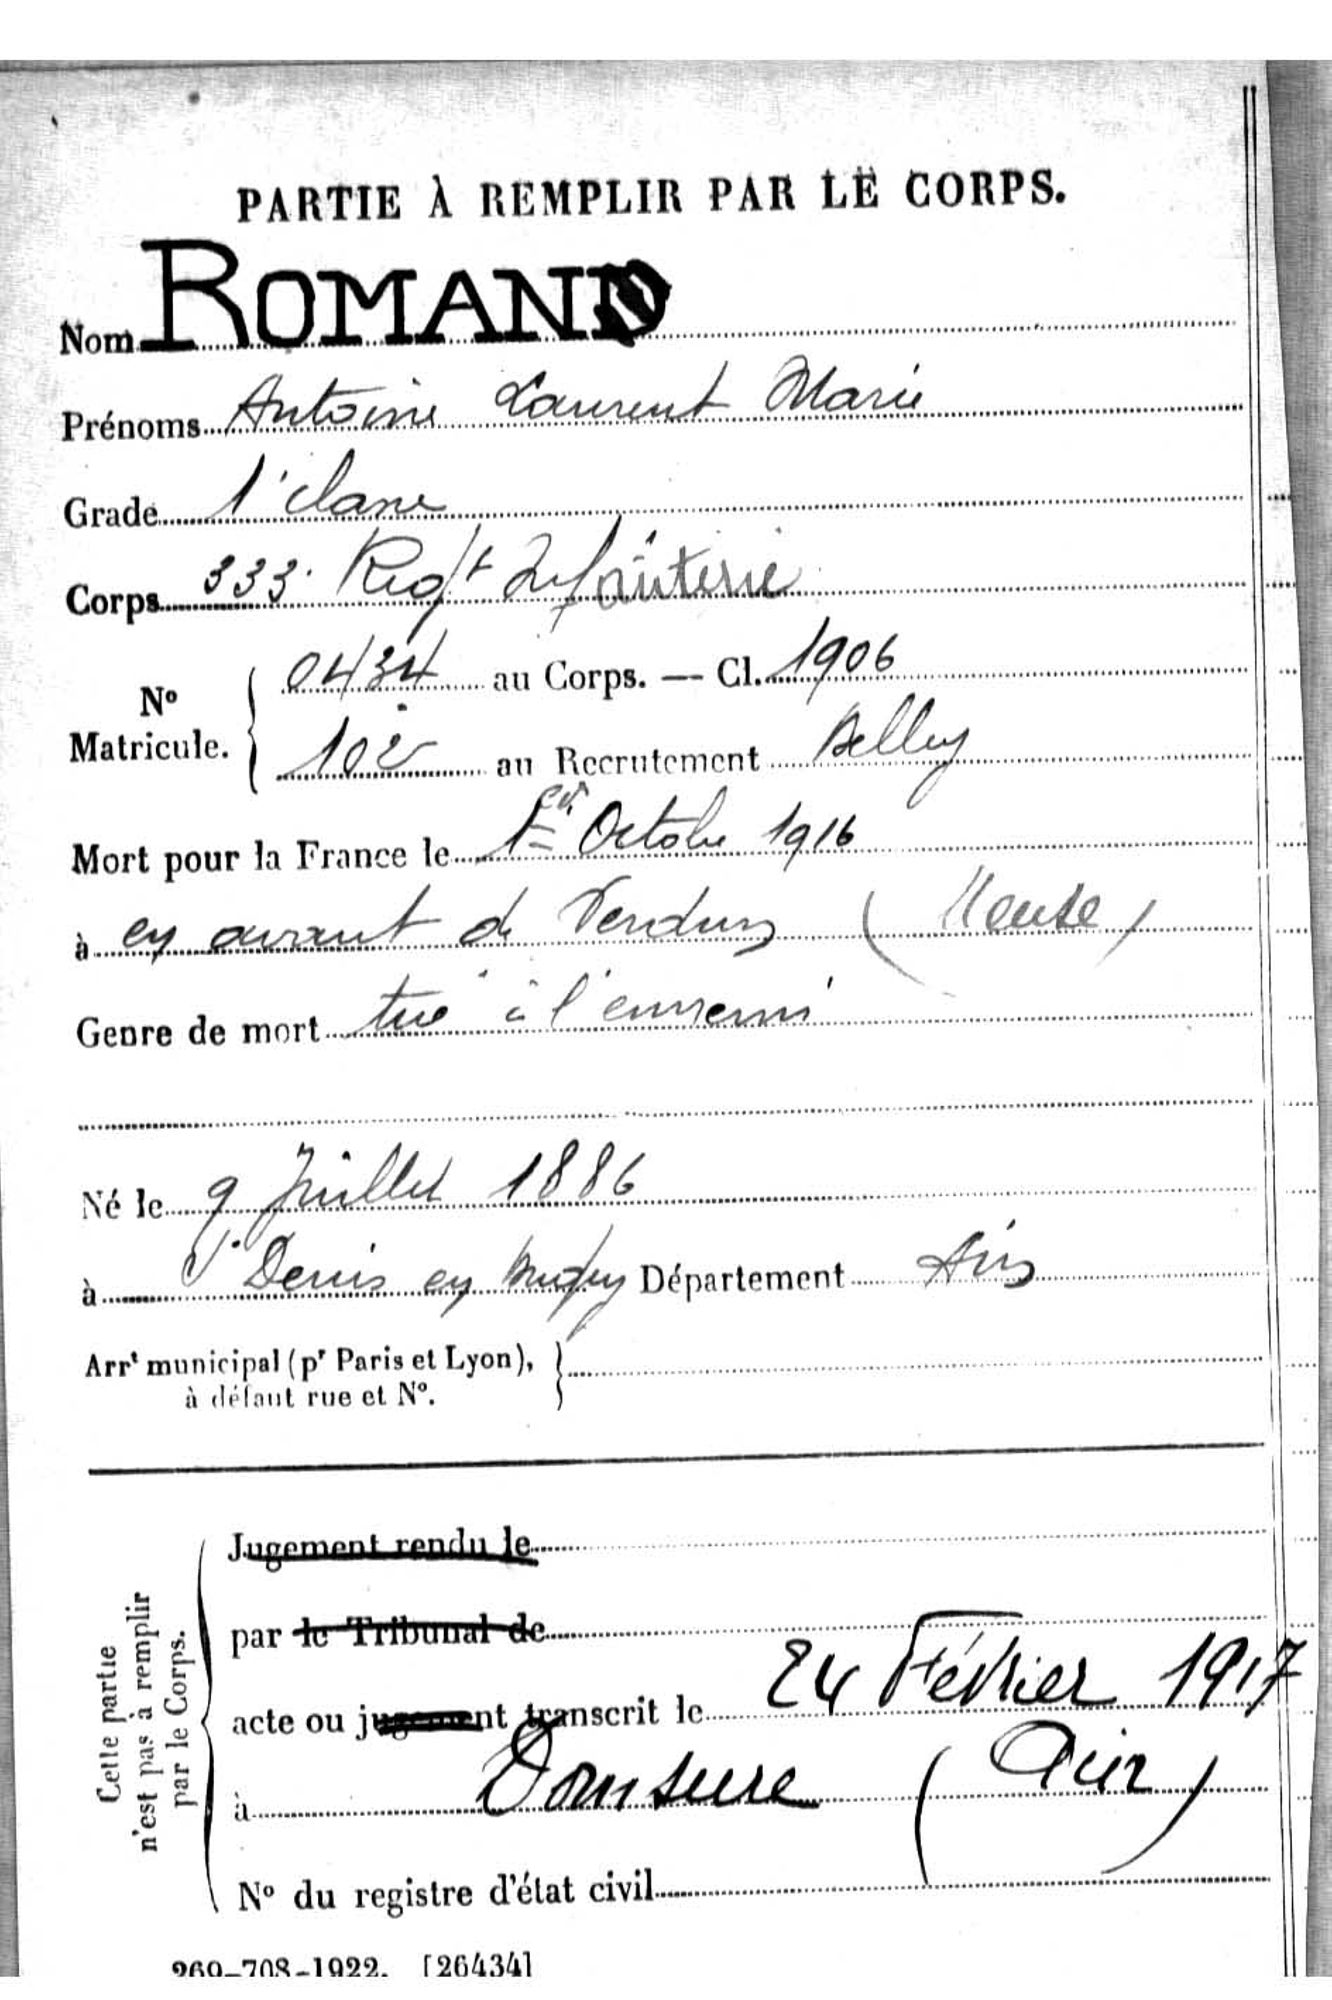 PARTIE À REMPLIR PAR LE CORPS.
Nom ROMAN
Prénoms Antoine Laurent Marie
Grade 1e classe
Corps 333e Regt Infanterie
No Matricule. 0434 au Corps. — Cl. 1906
102 au Recrutement Belley
Mort pour la France le 1er Octobre 1916
à en avant de Verdun (Meuse)
Genre de mort tué à l'ennemi
Né le 9 Juillet 1886
à St Denis en Bugey Département Ain
Arrt municipal (pr Paris et Lyon),
à défaut rue et No.
Cette partie
n'est pas à remplir
par le Corps.
Jugement rendu le
par le Tribunal de
acte ou jugement transcrit le 24 Février 1917
à Domsure (Ain)
No du registre d'état civil
269-708-1922. [26434]